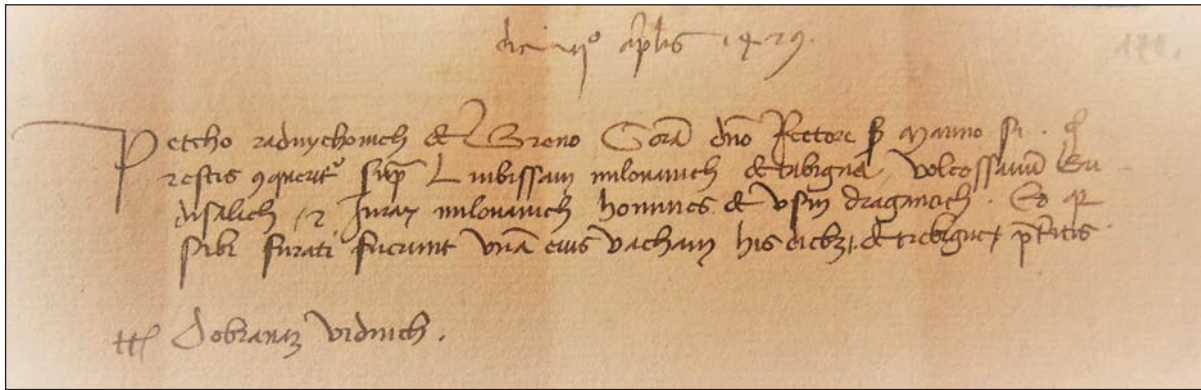 die vjº aprilis 1429.
Petcho radmychouich de Breno Corã dño Rectore ß Marino
restis 9querit' sup Liubissam milouanich de tribigna, volcossauũ Bu
disalich, 2 Juray milouanich homines de vsin draganich. Eo q
sibi furati fuerunt vnã eius vacham his dieb3, de tribigne
tt Dobranaz vidnich.